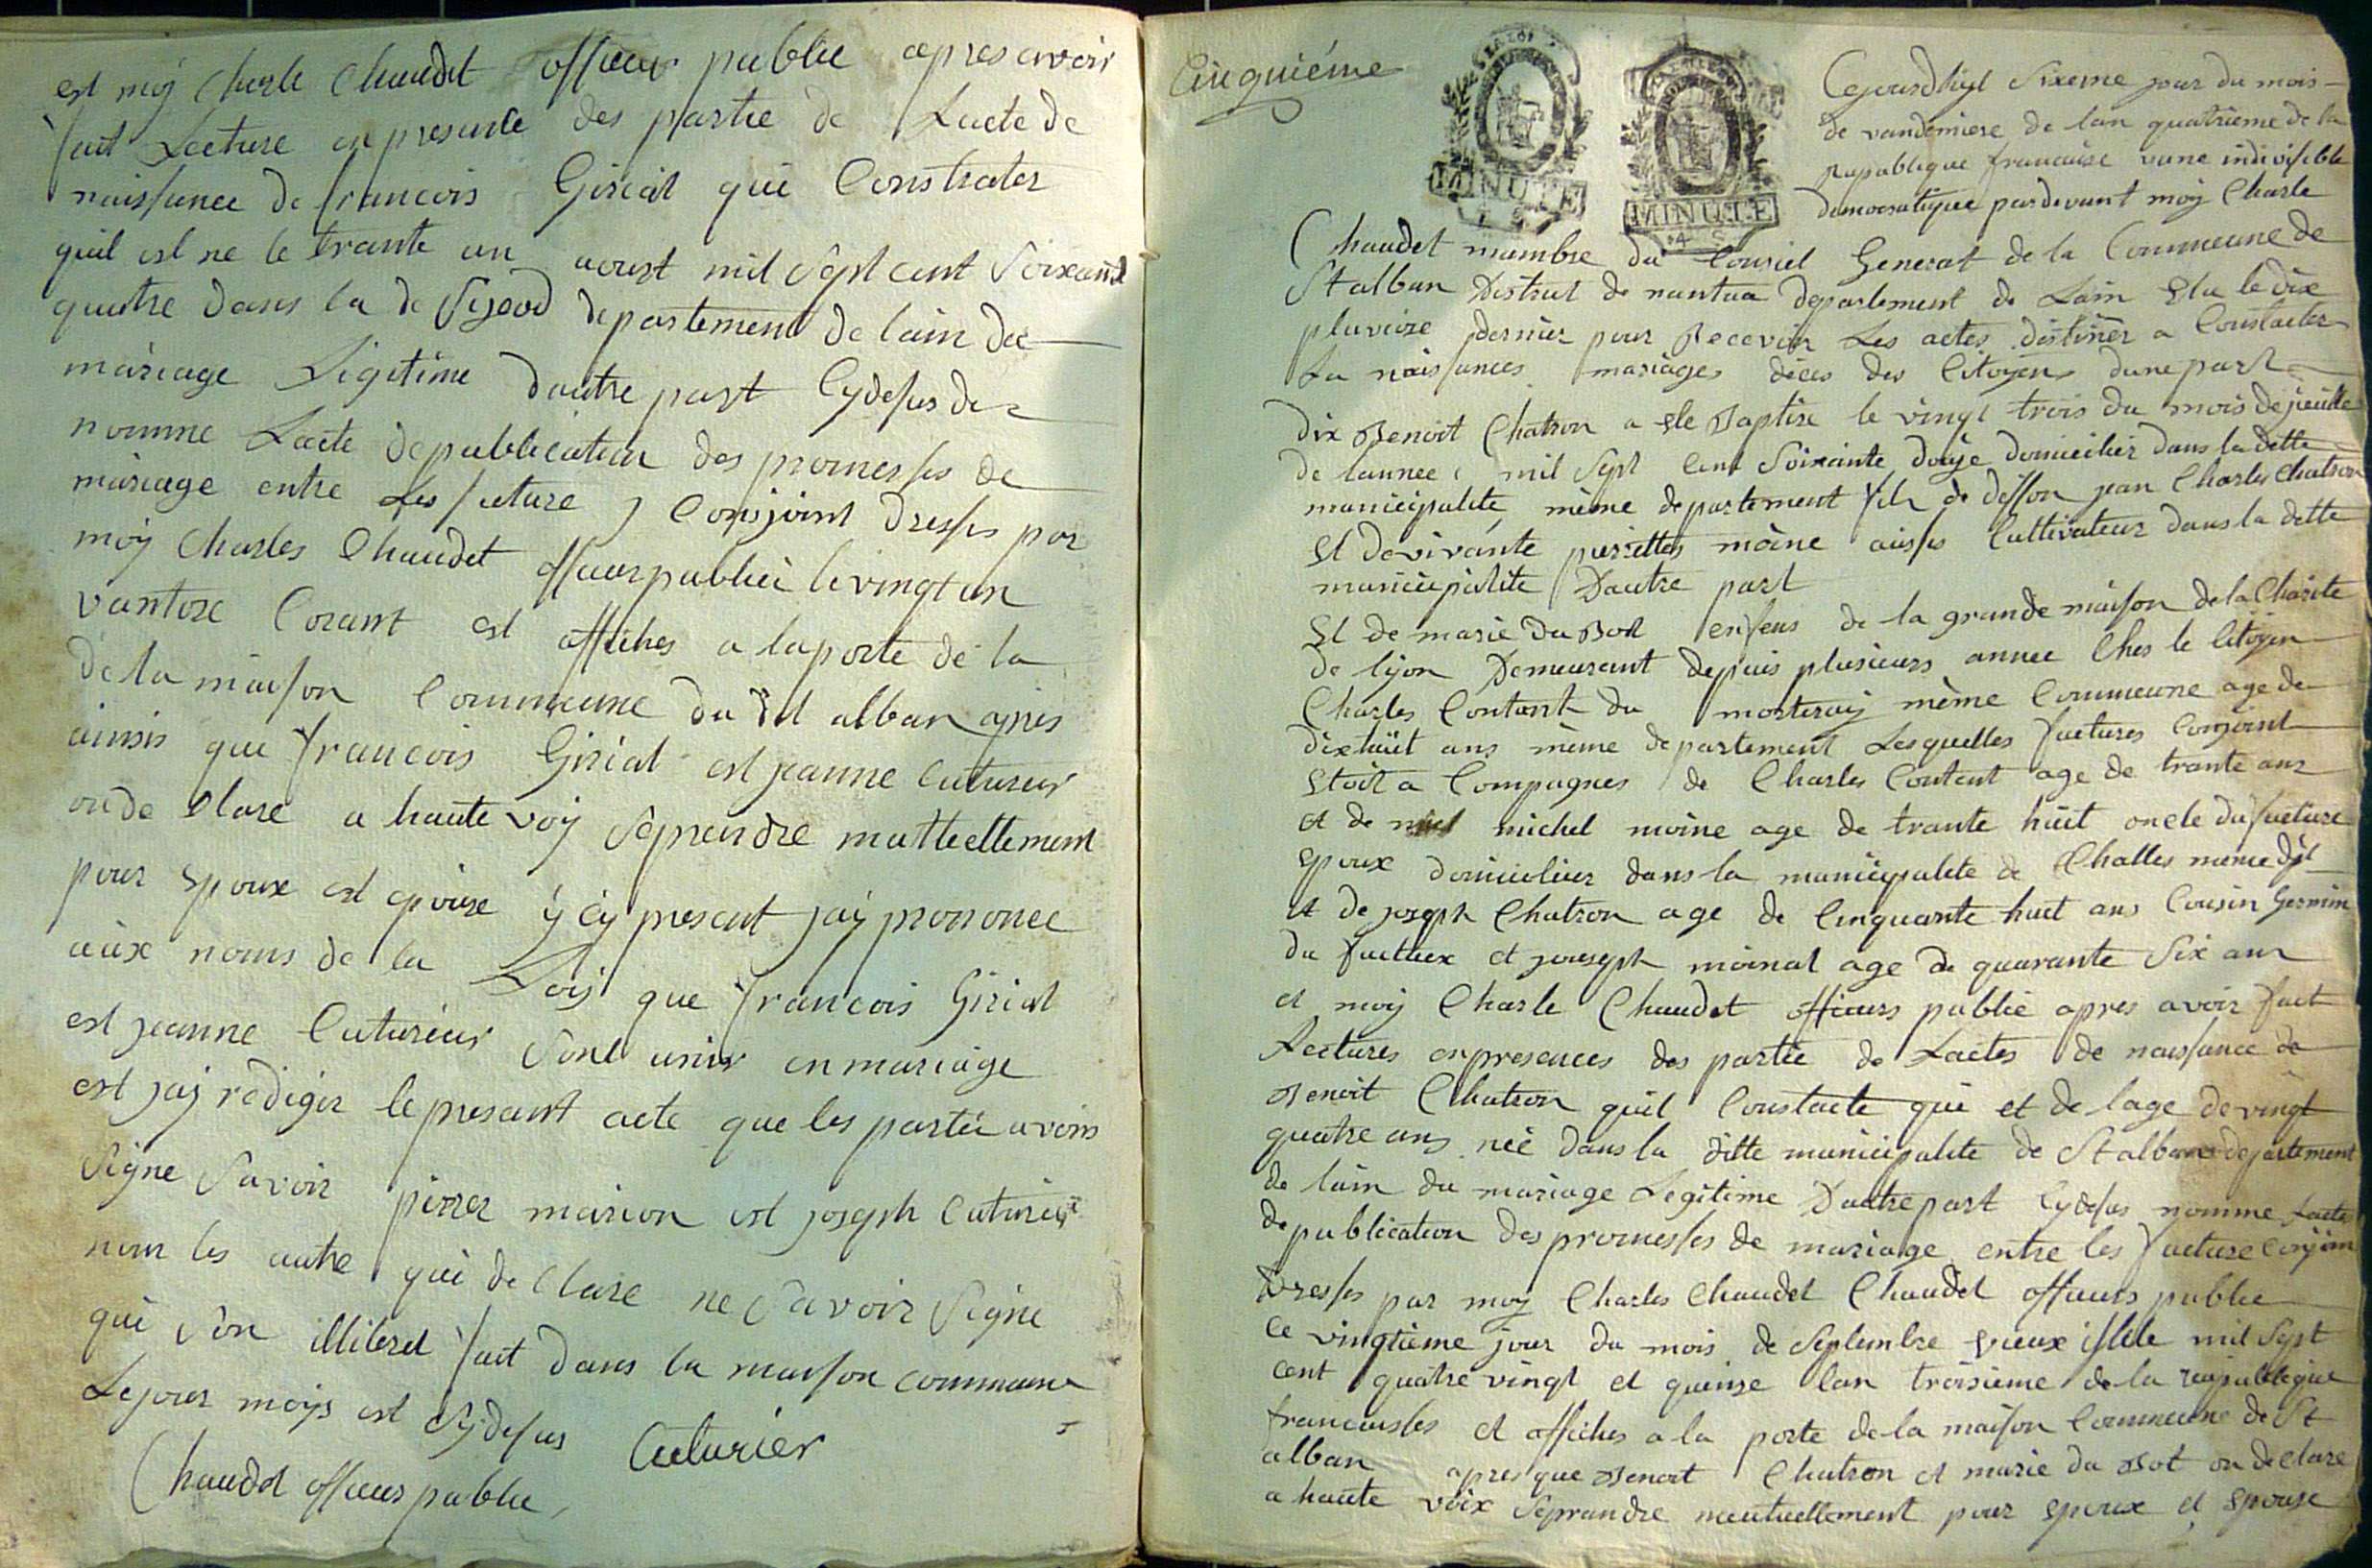 est moÿ Charle Chaudet officier publie apres avoir
fait Lecture en presence des partie de Lacte de
naissance de francois Giriat qui Constater
quil est ne le trante un aoust mil Sept cent Soixante
quatre dans la de departement de lain de
mariage Ligitime dautre part Cydesus de
nomme Lacte depublication des promesses de
mariage entre Les future Conjoint dresses par
moÿ Charles Chaudet officier publiei le vingt un
vantose Corant est affiches a laporte de la
de la maison Commeune du St alban apres
ainsis que francois Giriat est jeanne Cuturier
on de Clare a haute voÿ Seprendre muttuellement
pour Epoux est epouse ÿ cÿ present jaÿ prononce
aux noms de la Lois que francois Giriat
est jeanne Cuturieur Sont unis en mariage
est jaÿ rediger le presant acte que les partie avons
Signe Savoir pierrer marion est joseph Cuturier
non les autre qui de Clare ne Savoir Signe
qui son illiteret fait dans la maison commune
Lejour moÿs est Cÿdesus Cuturier
Chaudet officier publie
Cinquiéme
MINUTE
MINUTE
Cejourdhuÿ Sixeme jour du mois
de vandemiere de lan quatrieme de la
Republique francaise une indivisible
democratique pardevant moÿ Charle
Chaudet membre du Conseil General de la Commeune de
St alban District de nantua departement de Lain Elu le dix
pluviose dernier pour Recevoir Les actes destiner a Constacter
La naissances mariages déces des Citoyens dune part
dix Benoit Chatron a ete Baptise le vingt trois du mois de jeuille
de lannee mil Sept Cent Soixante douze domicilier dans la ditte
municipalité même departement fils de deffon jean Charles Chatron
Et de vivante pierettes moine aussis Cultivateur dans la ditte
municipalite Dautre part
Et de marie du Bot enfens de la grande maison de la Charite
de lÿon Demeurant depuis plusieurs annee Ches le Citoyen
Charles Contant du morteraÿ même Commeune age de
dixhuit ans même departement Lesquelles futures Conjoint
Etoit a Compagnes de Charles Contant age de trante ans
et de michel moine age de trante huit oncle du future
epoux domicilier dans la municipalite de Challes meme dpt
et de joseph Chatron age de Cinquante huit ans Cousin Germin
du futtux et jouseph moinat age de quarante Six ans
et moÿ Charle Chaudet officiers publie apres avoir fait
Lectures enpresences des partie de Lactes de naissance de
Benoit Chatron quil Constacte qui et de lage de vingt
quatre ans neé dans la ditte municipalite de St alban departement
de lain du mariage Legitime Dautre part Cydesus nomme Lacte
de publication des promesses de mariage entre les future conjoin
dresses par moÿ Charles Chaudet Chaudet officiers publie
Ce vingtième jour du mois de Septembre vieux istile mil Sept
cent quatre vingt et quinze lan troisieme de la republique
francaisses et affiches a la porte de la maison Commeune de St
alban apres que Benoit Chatron et marie du Bot on de clare
a haute voix Seprandre meutuellement pour epoux et epouse